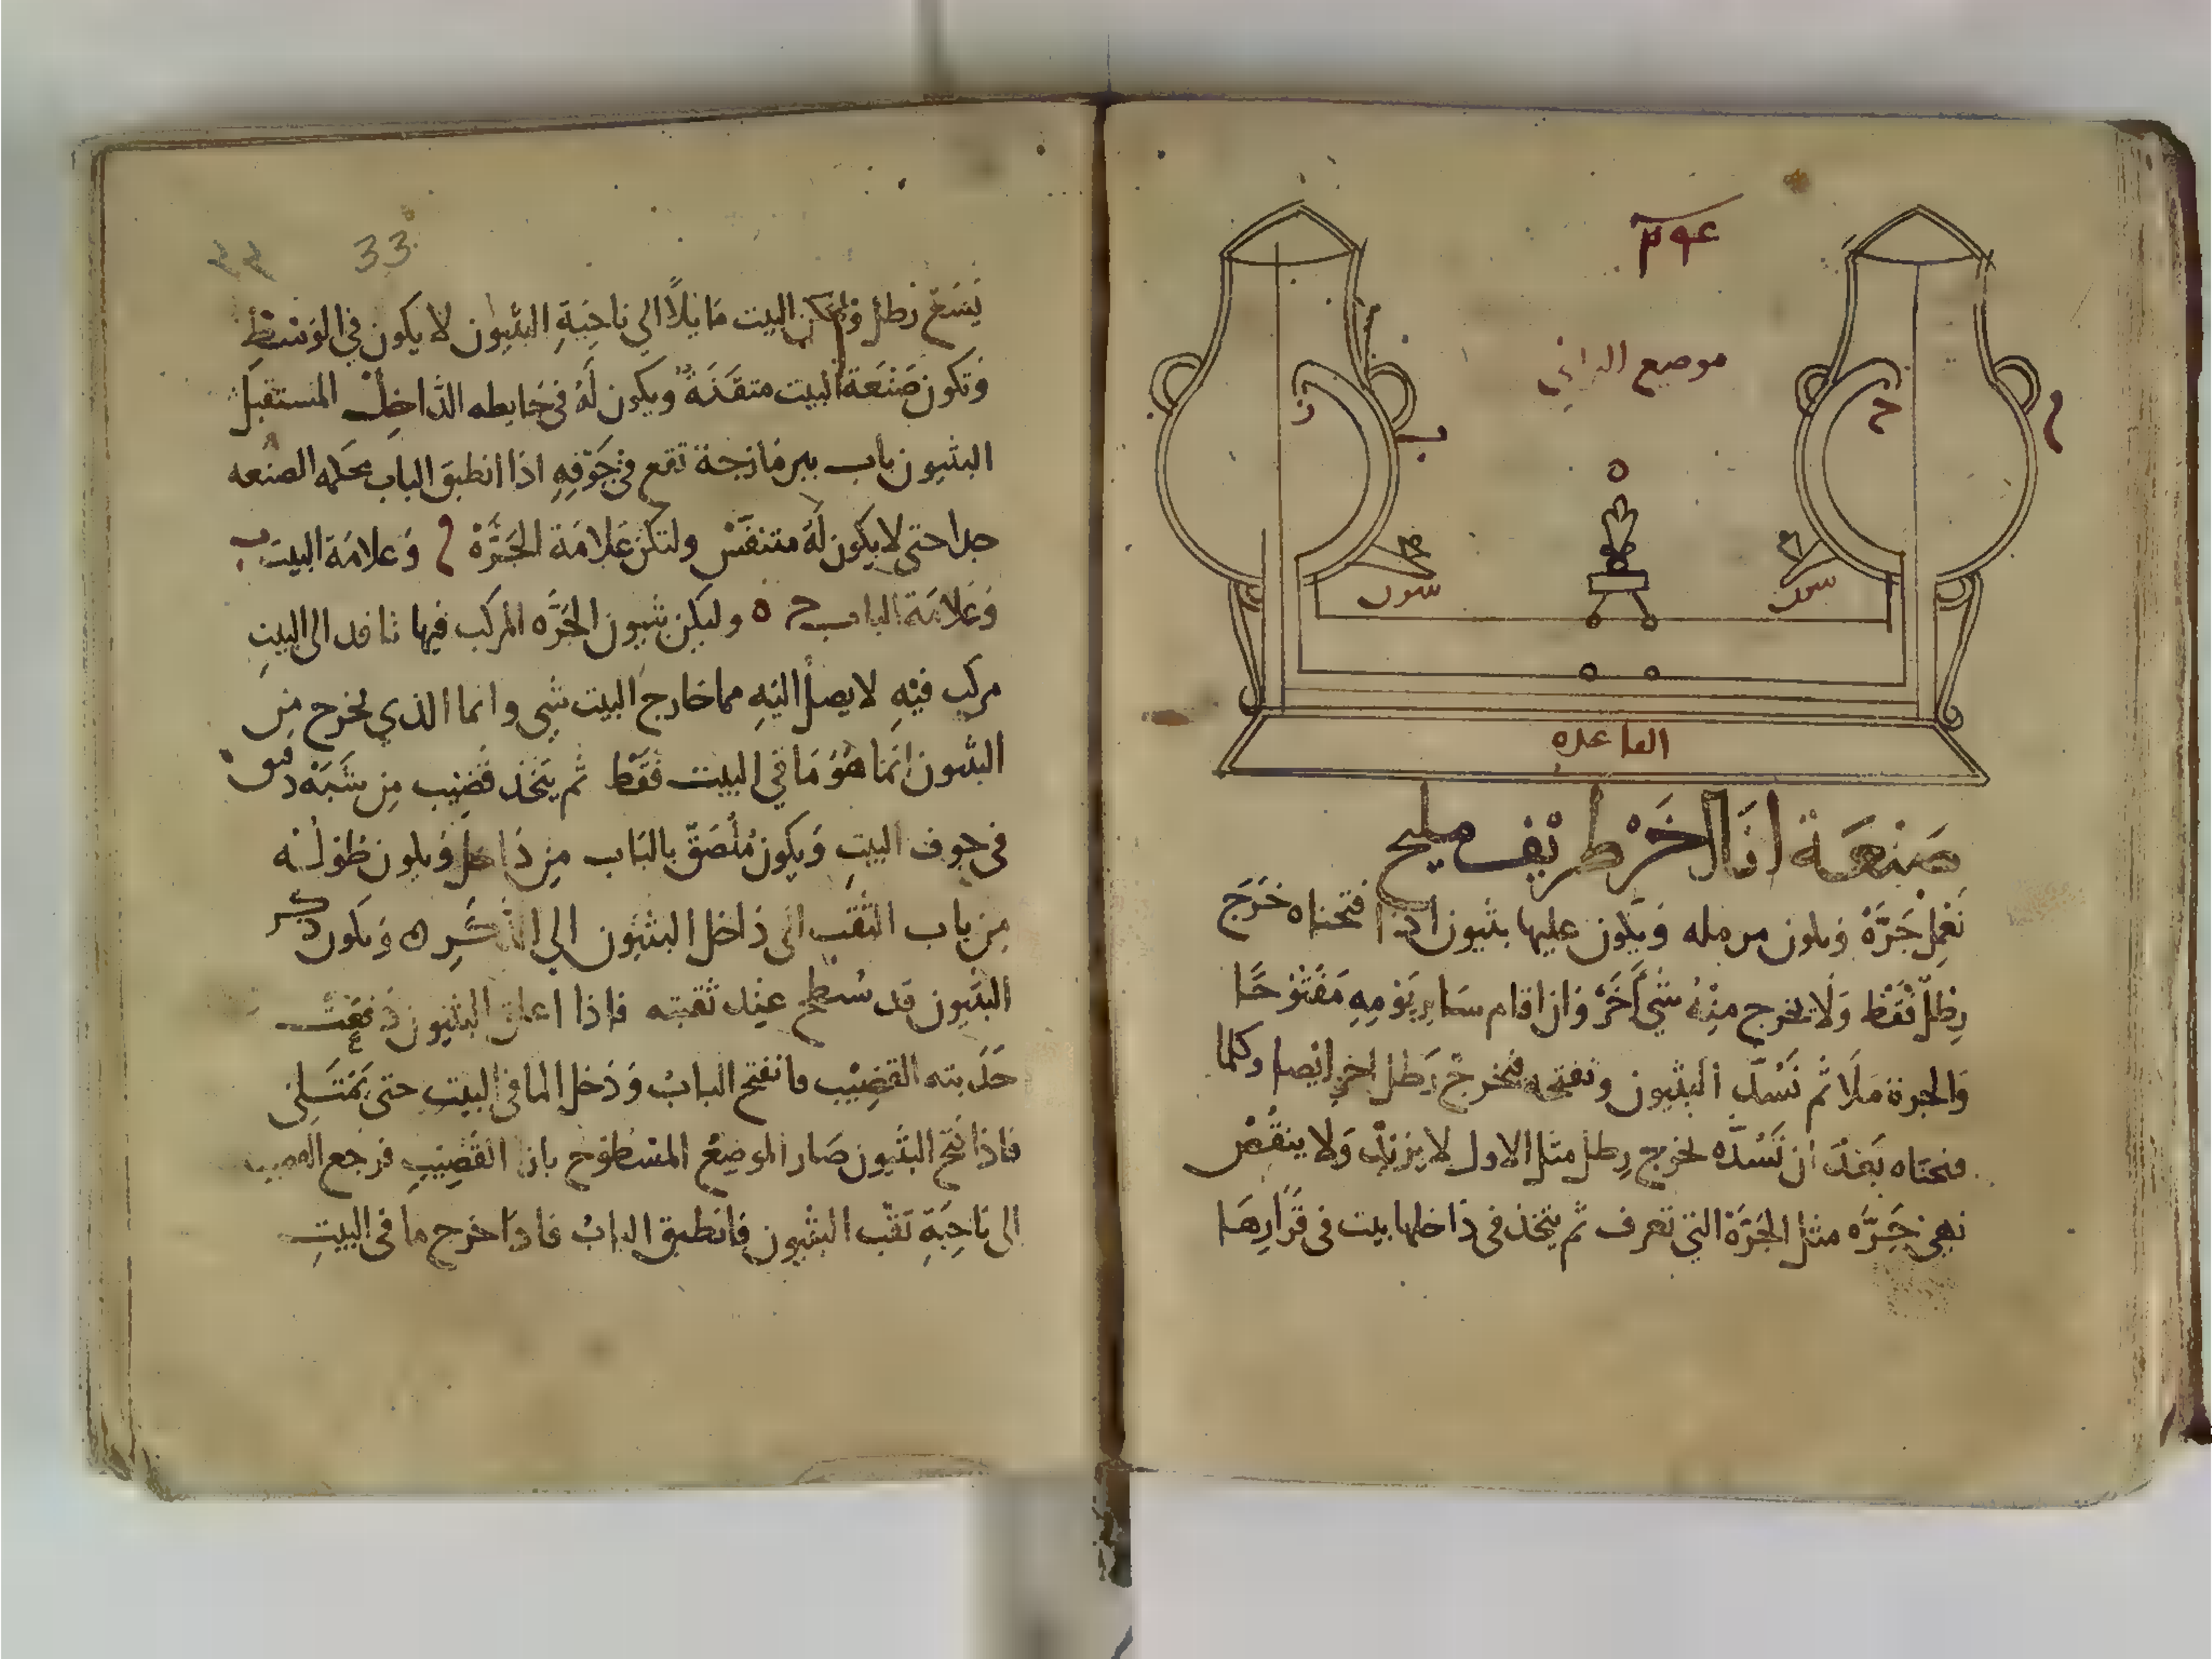 موضع الداني
ح
م
ز
ب
ه
القاعده
صَنْعَة انَا اخَر ظريف مليح
نَعْمِل جَرَّة وَيكون مرمله وَيكون عليها بثيون اذا فتحناه خَرَج
رِطْلٌ فَقَط وَلَا يخرج مِنْهُ شَيٌ آخَر وَاِن اقام سَاير يَوْمِهِ مَفْتُوحًا
وَالجرة مَلَا ثم نَسُدّ البثيون ونفتحه فيخرج رَطل اخر ايضا وكلما
فتحناه بَعْدَ اَن نَسُدَّه يخرج رِطل مثل الاول لا يَزيد وَلا ينقُص
جَرَّه مثل الجَرَّة التي تعرف ثم يتخذ في دَاخلها بيت في قَرَارِهَا
33
يَسَع رَطل وَليكن البيت مَايلًا الي نَاحِيَةِ البثيون لا يكون في الوَسْطِ
وَتكون صَنْعَة البيت متقَنَةً وَيكون لَهُ في حَايطه الدَّاخِل المستقبل
البثيون باب بير مَازجة تقع في جَوْفِهِ اذا انطبق الباب محكمه الصنعه
جدا حتى لا يكون لَهُ متنفَّس ولتكن عَلامَة الجَرَّة م وَعلامَة البيت ب
وَعَلامَة الباب ح ه وليكن بثيون الجَرَّه المركب فيها نافد الى البيتِ
مركب فيْهِ لا يصل اليْهِ مما خارج البيت شي وانما الذي يخرج مِن
البثيون اِنَّمَا هُوَ مَا في البيت فَقَط ثم يتخذ قضيب مِن شَبَه دقيق
في جوف البيتِ وَيكون مُلْصَق بالبَاب مِن دَاخل وَيكون طُولُه
مِن باب الثقب الى دَاخل البثيون الي الذَّكَرِ ه وَيكون ذكر
البثيون قد سُطح عِند ثقبته فاذا اغلق البثيون دَفعت
حَدَبته القضِيْب فانفتح البابُ وَدَخل الما في البيت حتى يَمْتَلي
فاذا فتح البثيون صَار الموضِع المسْطوح بازا القَضِيبِ فرجع القضيب
الى نَاحِيَةِ ثقب البثيون فانطبق البابُ فاذا خرج ما في البيتِ